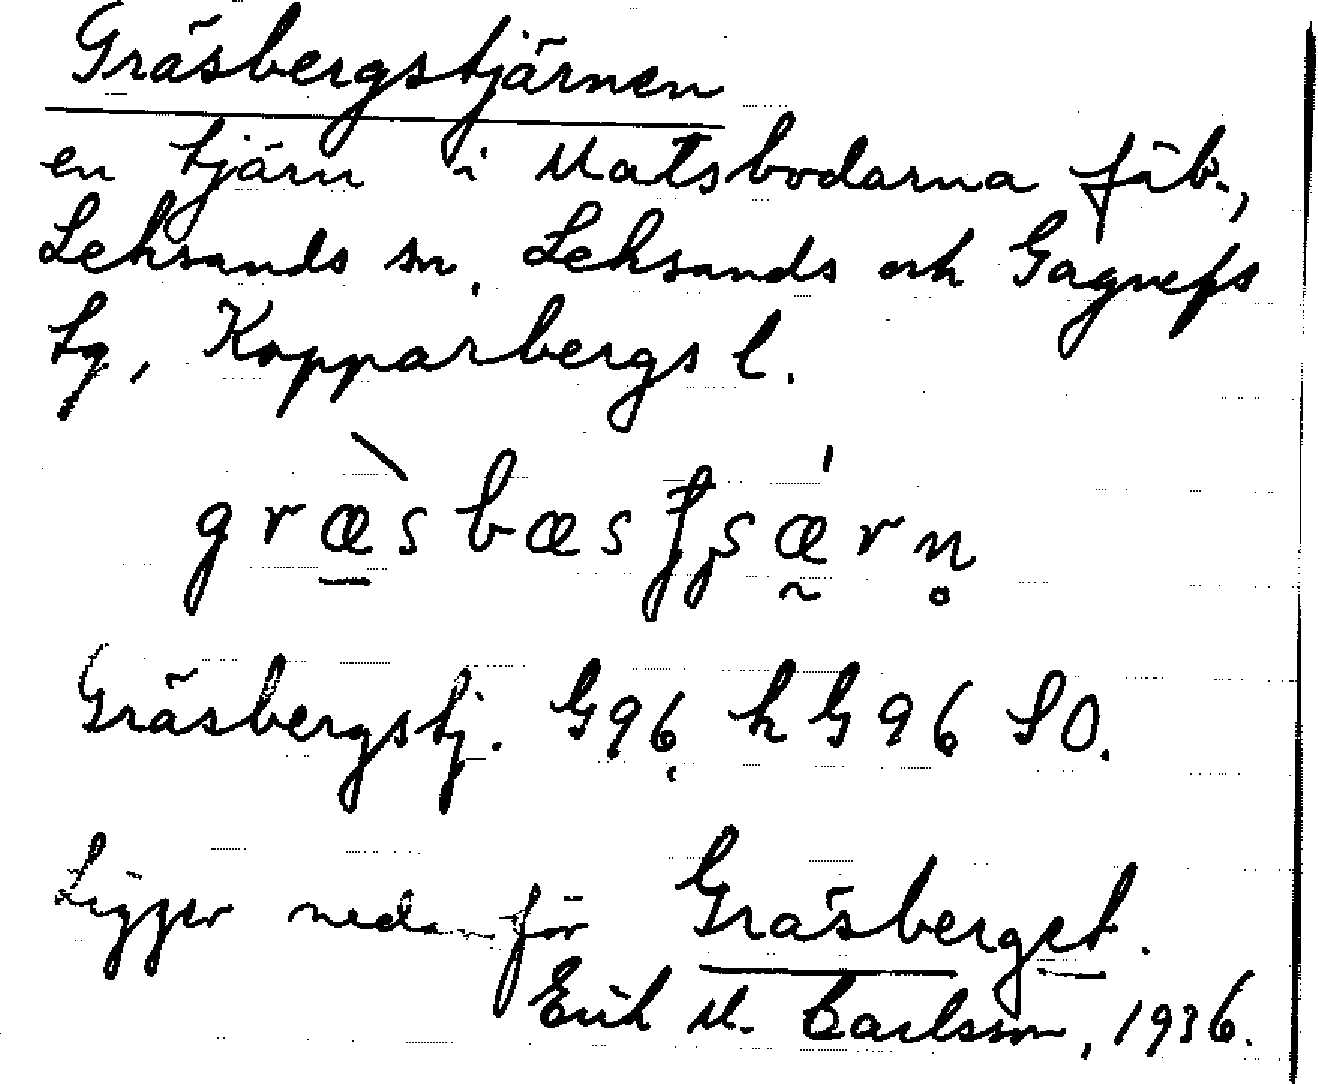 Gräsbergstjärnen
en tjärn i Matsbodarna fäb.,
Leksands sn, Leksands och Gagnefs
tg, Kopparbergs l.
Gräsbergstj. G96, k G96 SO.
Ligger nedanför Gräsberget.
Erik M. Carlsson, 1936.